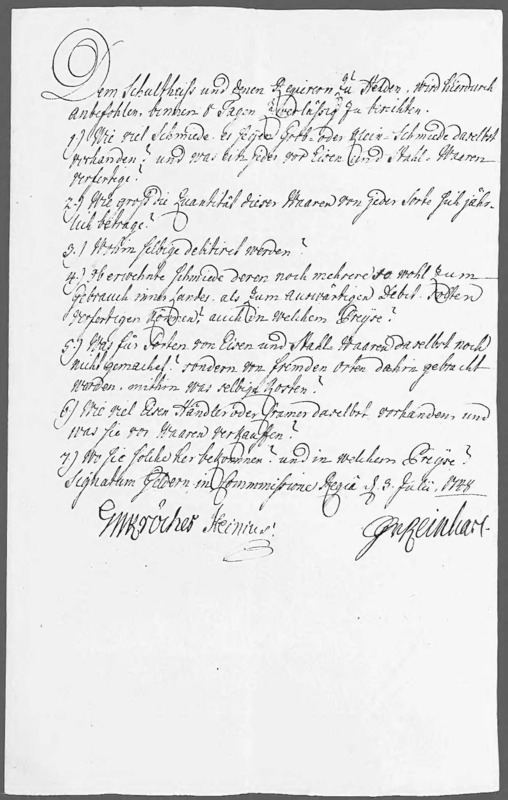 Dem Schultheiss und denen Regierern zu Helden, wird hierdurch
anbefohlen, binnen 8 Tagen zuverlässig zu berichten.
1.) Wie viel Schmiede es seyen Grob- oder Klein-Schmiede daselbst
vorhanden? und was ein jeder vor Eisen und Stahl-Waaren
verfertige?
2.) Wie gross die Quantität dieser Waaren von jeder Sorte sich jähr-
lich betrage?
3.) Wohin selbige debitiret werden?
4.) Ob erwehnte Schmiede deren noch mehrere so wohl zum
Gebrauch inner Landes, als zum auswärtigen Debit
verfertigen können, auch in welchem Preyse?
5.) Was für Sorten von Eisen und Stahl-Waaren daselbst noch
nicht gemachet, sondern von fremden Orten dahin gebracht
werden, mithin was selbige kosten?
6.) Wie viel Eisen Händler oder Cramer daselbst vorhanden, und
was sie vor Waaren verkauffen?
7.) Wo sie solche her bekommen? und in welchem Preyse?
Signatum Geldern in Commissione Regia d. 3. Julii 1748
Heinius
Reinhart